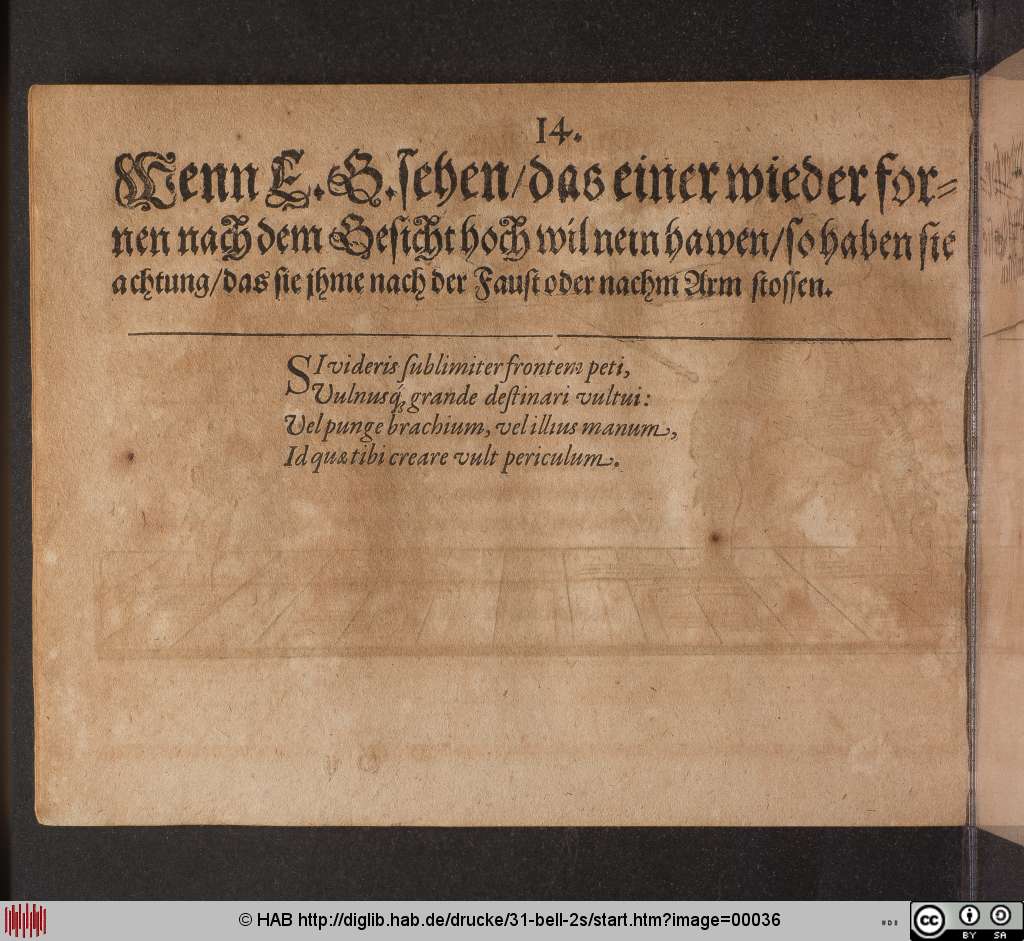 14.
Wenn E. G. sehen/das einer wieder for⸗
nen nach dem Gesicht hoch wil nein hawen/so haben sie
achtung/das sie jhme nach der Faust oder nachm Arm stossen.
SI videris ſublimiter frontem peti,
Vulnusq́; grande deſtinari vultui:
Vel punge brachium, vel illius manum,
Id quæ tibi creare vult periculum.
© HAB http://diglib.hab.de/drucke/31-bell-2s/start.htm?image=00036
cc BY SA